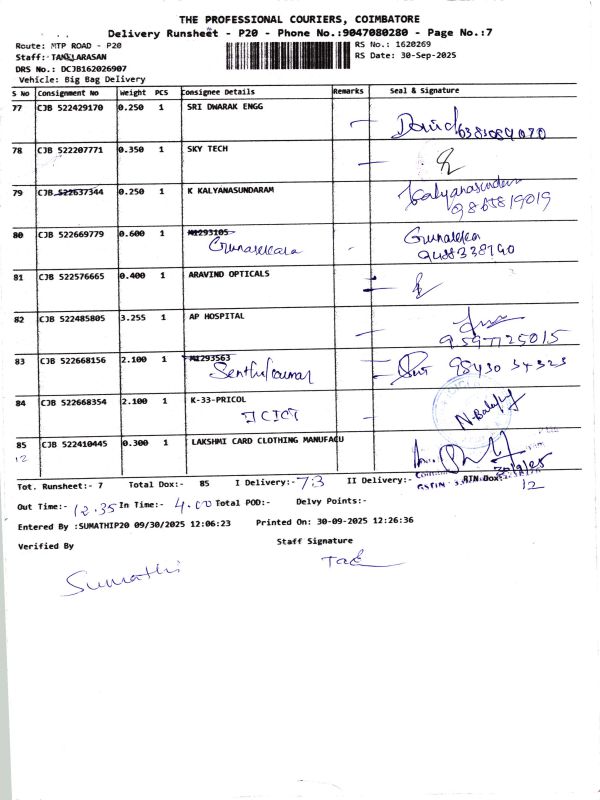 THE PROFESSIONAL COURIERS, COIMBATORE
Delivery Runsheet - P20 - Phone No.:9047080280 - Page No.:7
Route: MTP ROAD - P20
RS No.: 1620269
Staff: TAMILARASAN
RS Date: 30-Sep-2025
DRS No.: DCJB162026907
Vehicle: Big Bag Delivery
S No Consignment No Weight PCS Consignee Details Remarks Seal & Signature
77 CJB 522429170 0.250 1 SRI DWARAK ENGG
David 6383084070
78 CJB 522207771 0.350 1 SKY TECH
79 CJB 522637344 0.250 1 K KALYANASUNDARAM
Kalyanasundaram
9865819019
80 CJB 522669779 0.600 1 M1293105
Gunasekara Gunasekar
9488338740
81 CJB 522576665 0.400 1 ARAVIND OPTICALS
82 CJB 522485805 3.255 1 AP HOSPITAL
9597725015
83 CJB 522668156 2.100 1 M1293563
Senthilkumar 98430 34323
84 CJB 522668354 2.100 1 K-33-PRICOL
ICICI
85 CJB 522410445 0.300 1 LAKSHMI CARD CLOTHING MANUFACU
12
30/9/25
Tot. Runsheet:- 7 Total Dox:- 85 I Delivery:- 73 II Delivery:- RTN Dox:-
12
Out Time:- 12.35 In Time:- 4.00 Total POD:- Delvy Points:-
Entered By :SUMATHIP20 09/30/2025 12:06:23 Printed On: 30-09-2025 12:26:36
Verified By Staff Signature
Sumathi